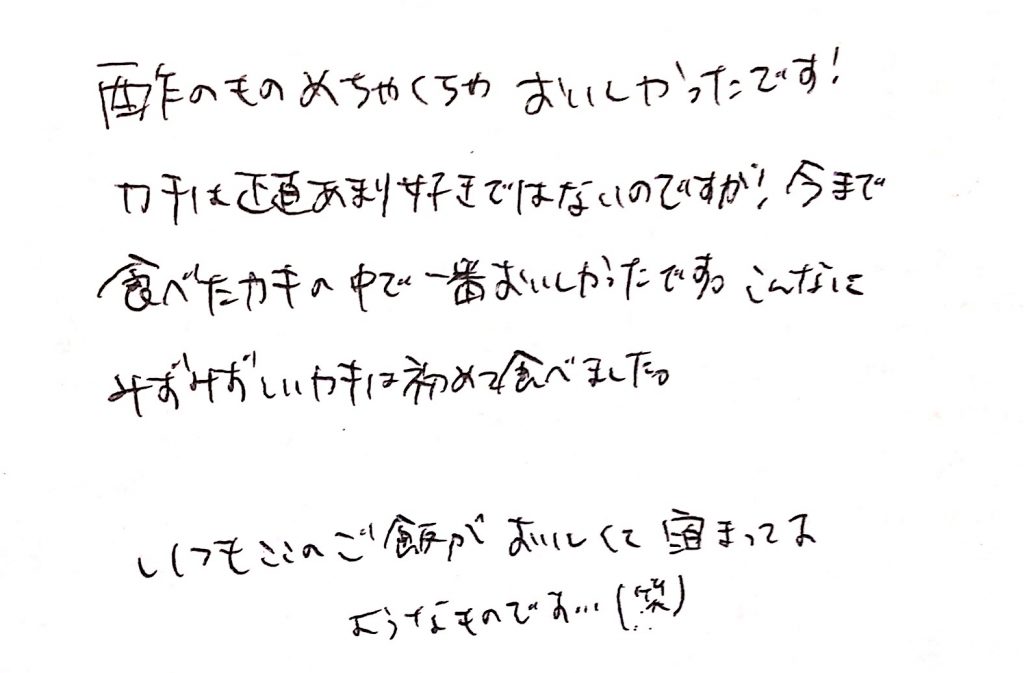 酢のものめちゃくちゃ おいしかったです!
カキは正直あまり好きではないのですが! 今まで
食べたカキの中で一番おいしかったです。こんなに
みずみずしいカキは初めて食べました。
いつもここのご飯がおいしくて 宿まってる
ようなものです…(笑)